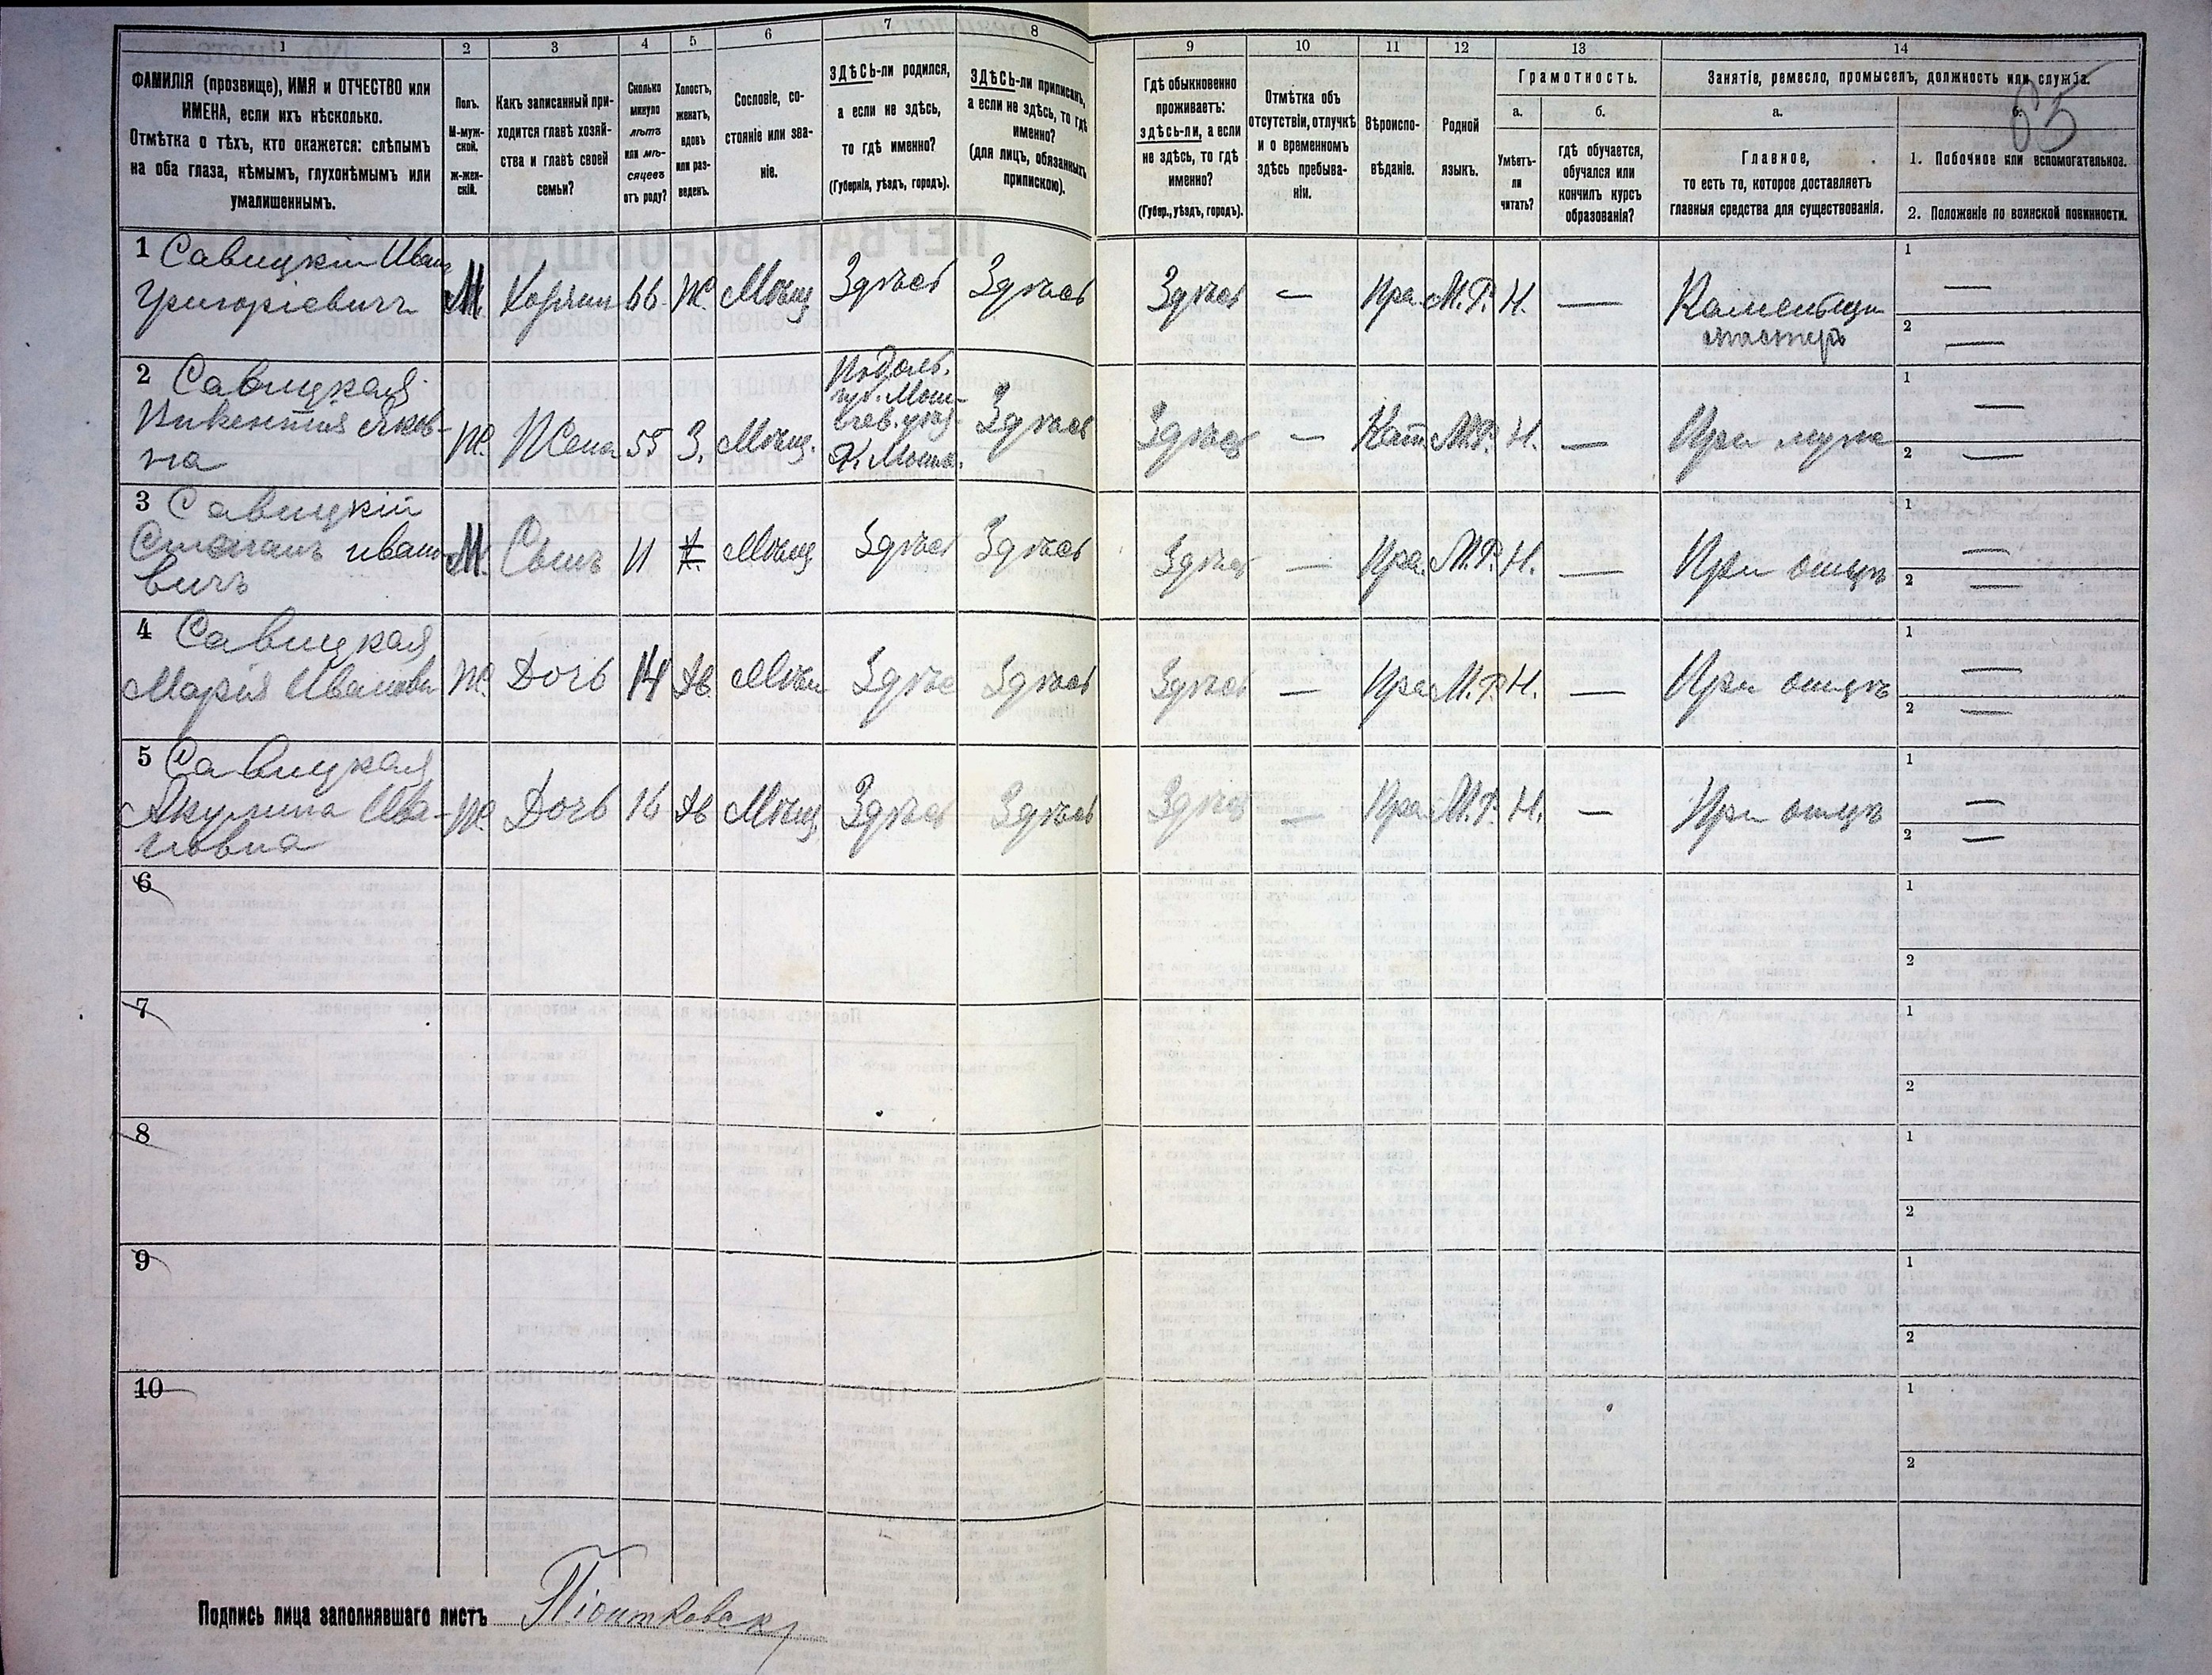 1
2
3
4
5
6
7
8
9
10
11
12
13
14
65
ФАМИЛІЯ (прозвище), ИМЯ и ОТЧЕСТВО или
ИМЕНА, если ихъ нѣсколько.
Отмѣтка о тѣхъ, кто окажется: слѣпымъ
на оба глаза, нѣмымъ, глухонѣмымъ или
умалишеннымъ.
Полъ.
М-муж-
ской.
Ж-жен-
скій.
Какъ записанный при-
ходится главѣ хозяй-
ства и главѣ своей
семьи?
Сколько
минуло
лѣтъ
или мѣ-
сяцевъ
отъ роду?
Холостъ,
женатъ,
вдовъ
или раз-
веденъ.
Сословіе, со-
стояніе или зва-
ніе.
ЗДѢСЬ-ли родился,
а если не здѣсь,
то гдѣ именно?
(Губернія, уѣздъ, городъ).
ЗДѢСЬ-ли приписанъ,
а если не здѣсь, то гдѣ
именно?
(для лицъ, обязанныхъ
припискою).
Гдѣ обыкновенно
проживаетъ:
здѣсь-ли, а если
не здѣсь, то гдѣ
именно?
(Губер., уѣздъ, городъ).
Отмѣтка объ
отсутствіи, отлучкѣ
и о временномъ
здѣсь пребыва-
ніи.
Вѣроиспо-
вѣданіе.
Родной
языкъ.
Грамотность.
а.
Умѣетъ-
ли
читать?
б.
гдѣ обучается,
обучался или
кончилъ курсъ
образованія?
Занятіе, ремесло, промыселъ, должность или служба.
а.
Главное,
то есть то, которое доставляетъ
главныя средства для существованія.
б.
1. Побочное или вспомогательное.
2. Положеніе по воинской повинности.
1 Савицкій Иван
Григоріевичъ
М.
Хозяин
66
Ж.
Мѣщ
Здѣсь
Здѣсь
Здѣсь
—
Пра.
М.Р.
Н.
—
Каменьщи
мастеръ
1 —
2 —
2 Савицкая
Викентія Яков-
на
Ж.
Жена
55
З.
Мѣщ.
Подоль.
губ. Моги-
лев. уѣзд.
Здѣсь
Здѣсь
—
Кат
М.Р.
Н.
—
При мужѣ
1 —
2 —
3 Савицкій
Степанъ Ивано
вичъ
М.
Сынъ
11
Х.
Мѣщ
Здѣсь
Здѣсь
Здѣсь
—
Пра.
М.Р.
Н.
—
При отцѣ
1 —
2 —
4 Савицкая
Марія Ивановн
Ж.
Дочь
14
Дѣ.
Мѣщ
Здѣсь
Здѣсь
Здѣсь
—
Пра
М.Р.
Н.
—
При отцѣ
1 —
2 —
5 Савицкая
Акулина Ива-
новна
Ж.
Дочь
16
Дѣ
Мѣщ
Здѣсь
Здѣсь
Здѣсь
—
Пра
М.Р.
Н.
—
При отцѣ
1 —
2 —
6
1
2
7
1
2
8
1
2
9
1
2
10
1
2
Подпись лица заполнявшаго листъ